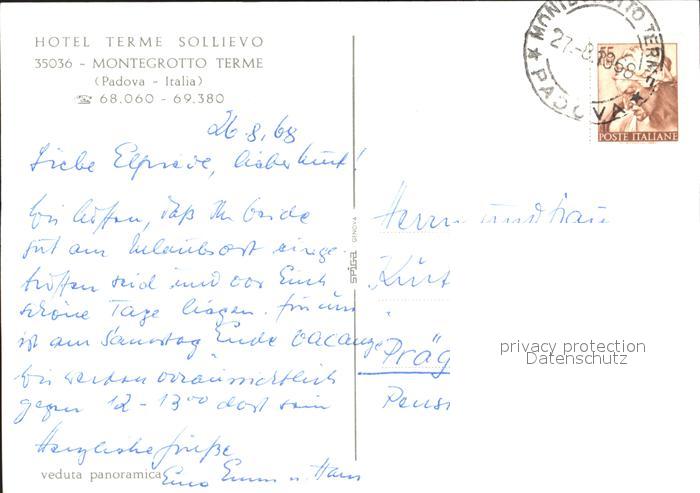 HOTEL TERME SOLLIEVO
35036 - MONTEGROTTO TERME
(Padova - Italia)
☎ 68.060 - 69.380
26.8.68
Liebe Elfriede, lieber Kurt!
Wir hoffen, daß Ihr beide
gut am Urlaubsort einge-
troffen seid und vor Euch
schöne Tage liegen. Für uns
ist am Samstag Ende
Wir werden voraussichtlich
gegen 12 - 13⁰⁰ dort sein
Herzliche Grüße
Emmi u. Hans
veduta panoramica
SPIGA GENOVA
MONTEGROTTO TERME
27.-8.1968
PADOVA
55
POSTE ITALIANE
Herrn und Frau
Kurt
Präg
Pens
privacy protection
Datenschutz